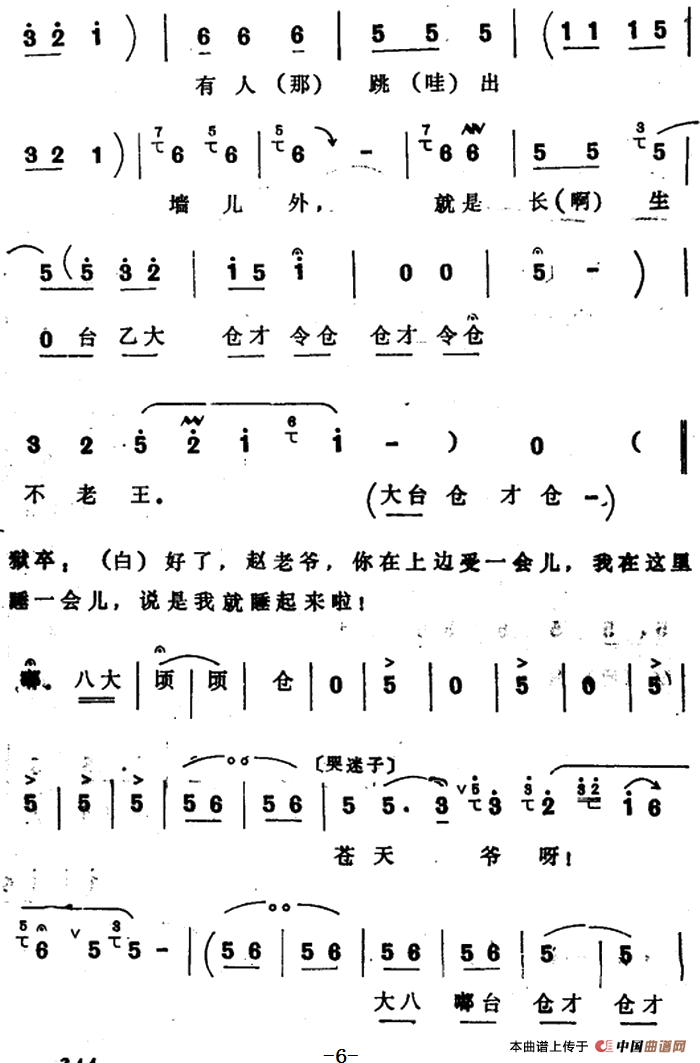 3 2 1 ) | 6 6 6 | 5 5 5 | ( 1 1 1 5 |
有 人 (那) 跳 (哇) 出
3 2 1 ) | 7 6 5 6 | 5 6 - | 7 6 6 | 5 5 3 5
墙 儿 外， 就 是 长 (啊) 生
5 ( 5 3 2 | 1 5 1 | 0 0 | 5 - ) |
0 台 乙大 仓才 令仓 仓才 令仓
3 2 5 2 1 6 1 - ) 0 (
不 老 王。 (大台 仓 才 仓 -)
狱卒：（白）好了，赵老爷，你在上边受一会儿，我在这里
睡一会儿，说是我就睡起来啦！
嘟. 八大 | 顷 | 顷 | 仓 | 0 | 5 | 0 | 5 | 0 | 5 |
〔哭迷子〕
5 | 5 | 5 | 5 6 | 5 6 | 5 5. 3 5 3 3 2 3 2 1 6
苍 天 爷 呀！
5 6 5 3 5 - | ( 5 6 | 5 6 | 5 6 | 5 6 | 5 | 5 |
大八 嘟台 仓才 仓才
-6-
本曲谱上传于 中国曲谱网